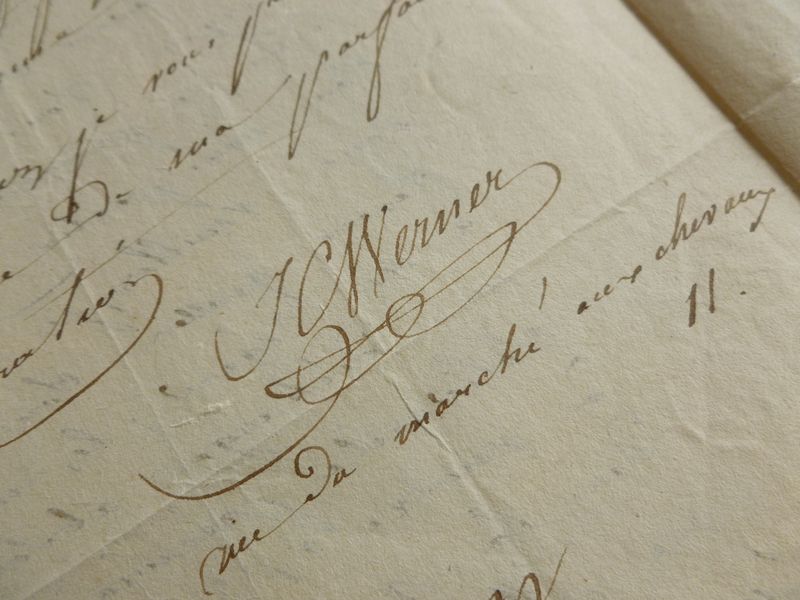 je vous
de ma parfai
J C Werner
rue du marché aux chevaux
11.